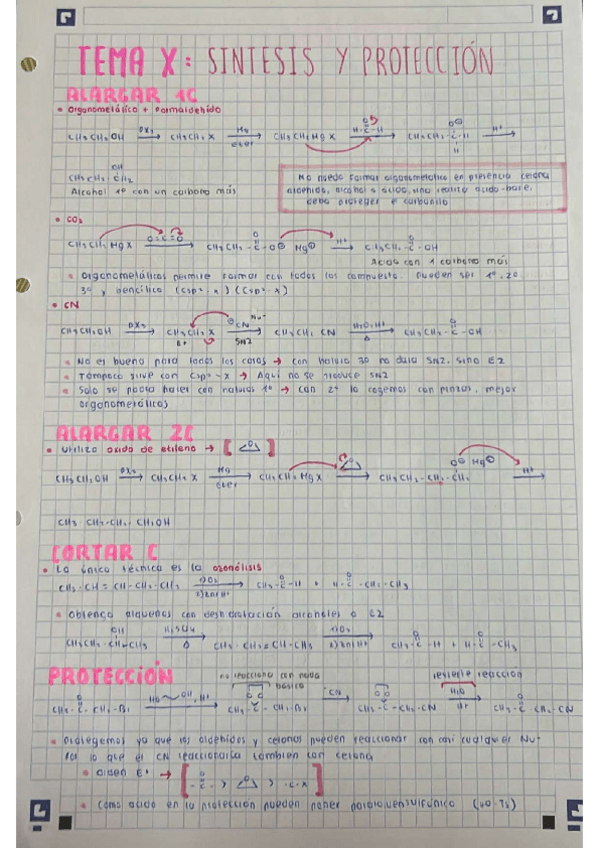 TEMA X: SINTESIS Y PROTECCIÓN
ALARGAR 1C
• Organometálico + Formaldehído
CH3CH2OH PX3 CH3CH2X Mg eter CH3CH2MgX H-C-H O CH3CH2-C-H H H+
OH
CH3CH2-CH2
Alcohol 1º con un carbono más
No puedo formar organometálico en presencia cetona
aldehído, alcohol o ácido, una realiza ácido-base.
debo proteger el carbonilo
• CO2
CH3CH2MgX O=C=O CH3CH2-C-O⊖ Mg⊕ H+ CH3CH2-C-OH
Acido con 1 carbono más
• Organometálicos permite formar con todos los compuesto. Pueden ser 1º, 2º
3º, bencílico (Csp2-x) (Csp3-x)
• CN
CH3CH2OH PX3 CH3CH2X ⊖CN Nu- SN2 CH3CH2CN H2O, H+ Δ CH3CH2-C-OH
• No es bueno para todos los casos → con haluro 3º no dara SN2, sino E2
• Tampoco sirve con Csp2-X → Aquí no se produce SN2
• Solo se podra hacer con haluros 1º → con 2º lo cogemos con pinzas, mejor
organometálico)
ALARGAR 2C
• utilizo oxido de etileno → [ O ]
CH3CH2OH PX3 CH3CH2X Mg eter CH3CH2MgX O CH3CH2-CH2-CH2 O⊖ Mg⊕ H+
CH3-CH2-CH2-CH2OH
CORTAR C
• La única técnica es la ozonólisis
CH3-CH=CH-CH2-CH3 1)O3 2)Zn/H+ CH3-C-H + H-C-CH2-CH3
• Obtengo alquenos con deshidratación alcoholes o E2
OH
CH3CH2-CH-CH3 H2SO4 Δ CH3-CH=CH-CH3 1)O3 2)Zn/H+ CH3-C-H + H-C-CH3
PROTECCIÓN
no reacciona con nada básico
revierto reacción
CH3-C-CH2-Br HO OH, H+ CH3-C-CH2-Br -CN CH3-C-CH2-CN H2O H+ CH3-C-CH2-CN
• Protegemos ya que los aldehídos y cetonas pueden reaccionar con casi cualquier Nu-
Por lo que el CN reaccionaría tambien con cetona
• Orden E+ → [ -C- > O > -C-X ]
• Como acido en la protección pueden poner paratoluensulfónico (HO-Ts)